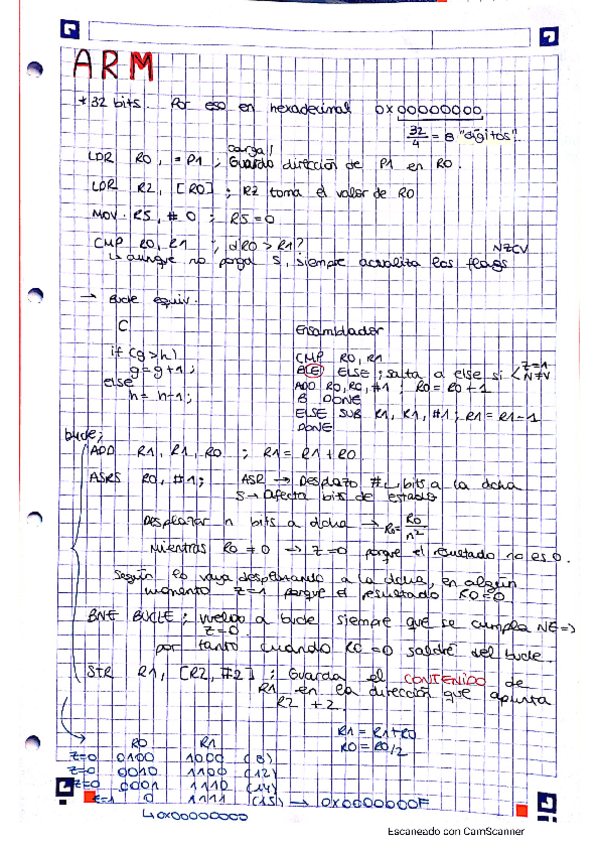 ARM
* 32 bits. Por eso en hexadecimal 0x00000000
32/4 = 8 "dígitos".
carga/
LDR R0, = P1 ; Guardo dirección de P1 en R0.
LDR R2, [R0] ; R2 toma el valor de R0
MOV R5, # 0 ; R5=0
CMP R0, R1 ; ¿R0 > R1?
NZCV
↳ aunque no ponga S, siempre actualiza los flags
→ Bucle equiv.
C
Ensamblador
if (g>h)
g=g+1;
else
h= h-1;
CMP R0, R1
BLE ELSE ; salta a else si < Z=1
N≠V
ADD R0, R0, #1 ; R0= R0+1
B DONE
ELSE SUB R1, R1, #1 ; R1= R1-1
DONE
bucle;
ADD R1, R1, R0 ; R1= R1+R0
ASRS R0, #1; ASR → Desplazo #1 bits a la dcha
S → afecta bits de estado
Desplazar n bits a dcha → R0= R0/n²
Mientras R0 ≠ 0 → Z=0 porque el resultado no es 0.
Según lo vaya desplazando a la dcha, en algún
momento Z=1 porque el resultado R0=0
BNE BUCLE ; vuelvo a bucle siempre que se cumpla NE =>
Z=0.
por tanto cuando R0=0 saldré del bucle.
STR R1, [R2, #2] ; Guarda el CONTENIDO de
R1 en la dirección que apunta
R2 + 2.
R1 = R1+R0
R0 = R0/2
R0 R1
Z=0 0100 1000 (8)
Z=0 0010 1100 (12)
Z=0 0001 1110 (14)
Z=1 0 1111 (15) → 0x0000000F
↳ 0x00000000
Escaneado con CamScanner